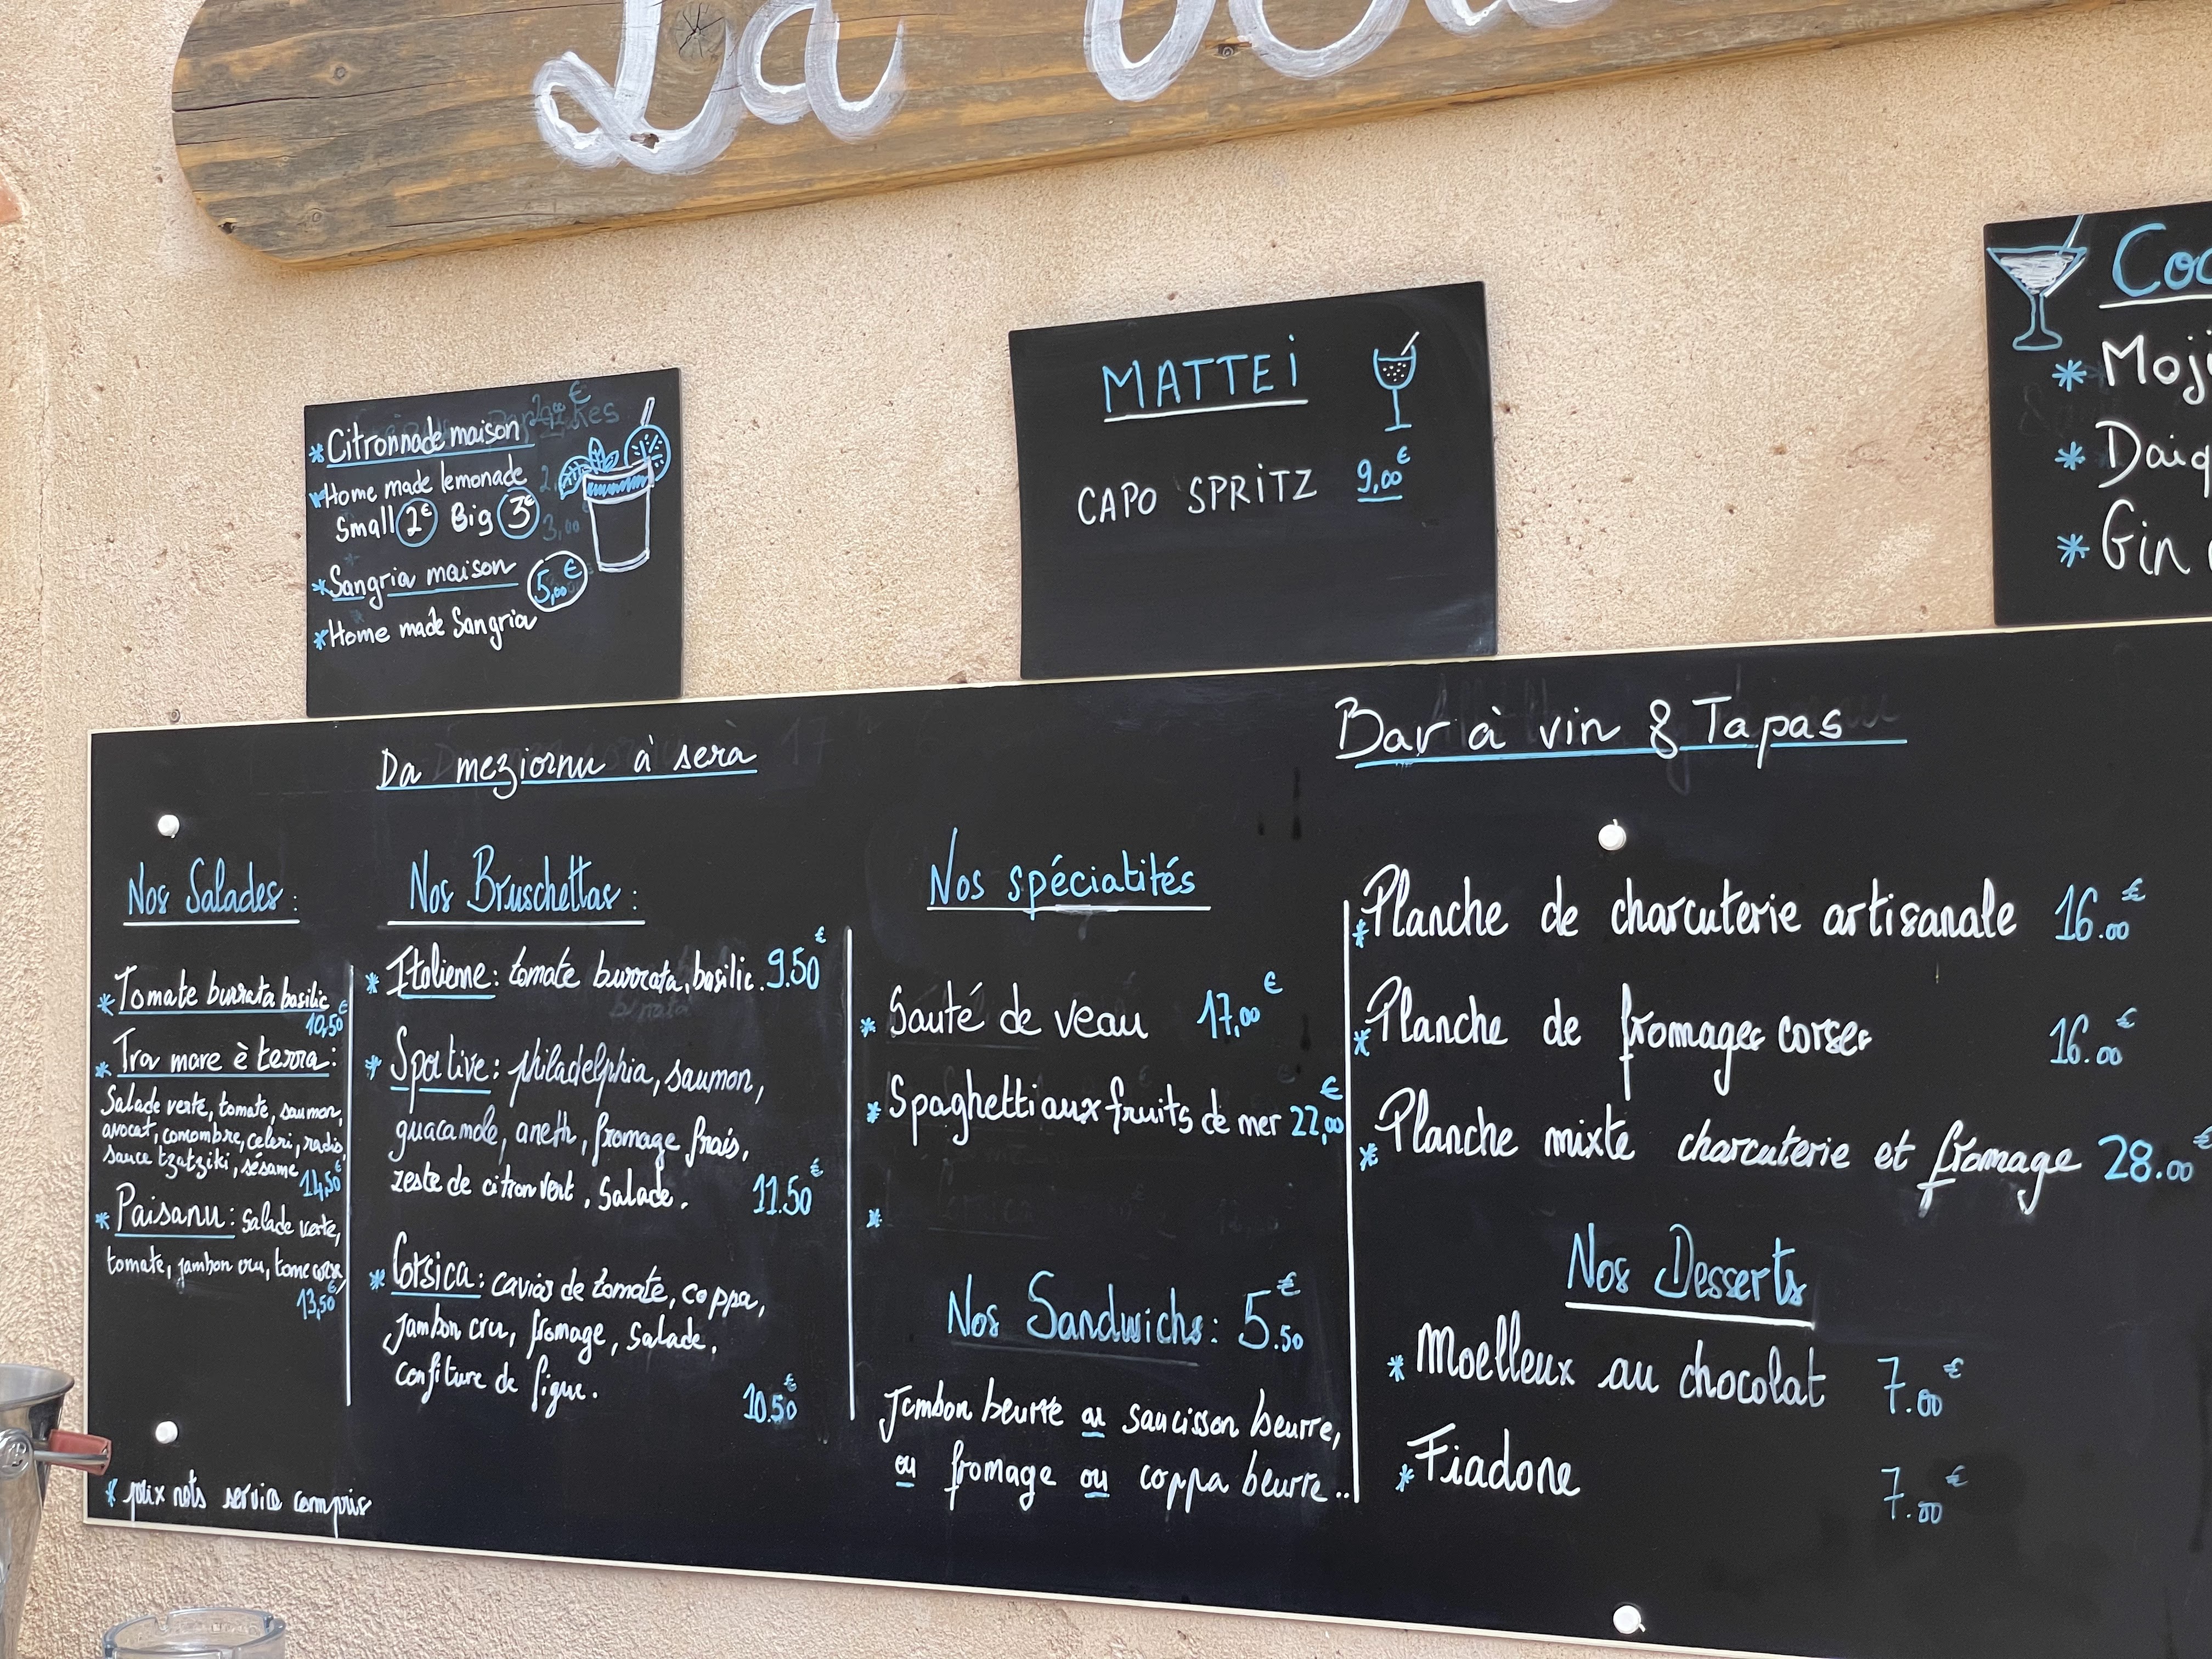 La
*Citronnade maison
*Home made lemonade
Small 2€ Big 3€
*Sangria maison 5,00€
*Home made Sangria
MATTEi
CAPO SPRiTZ 9,00€
Coc
* Moji
* Daiq
* Gin
Da meziornu à sera
Nos Salades :
* Tomate burrata basilic
10,50€
* Tra mare è terra :
Salade verte, tomate, saumon,
avocat, concombre, celeri, radis,
sauce tzatziki, sésame 14,50€
* Paisanu : Salade verte,
tomate, jambon cru, tome corse
13,50€
* prix nets service compris
Nos Bruschettas :
* Italienne : tomate burrata, basilic. 9.50€
* Sportive : philadelphia, saumon,
guacamole, aneth, fromage frais,
zeste de citron vert, Salade. 11.50€
* Corsica : caviar de tomate, coppa,
Jambon cru, fromage, Salade,
confiture de figue.
10.50€
Nos spécialités
* Sauté de veau 17,00€
* Spaghetti aux fruits de mer 22,00€
*
Nos Sandwichs : 5.50€
Jambon beurre ou saucisson beurre,
ou fromage ou coppa beurre..
Bar à vin & Tapas
* Planche de charcuterie artisanale 16.00€
* Planche de fromages corses 16.00€
* Planche mixte charcuterie et fromage 28.00€
Nos Desserts
* Moelleux au chocolat 7.00€
* Fiadone 7.00€